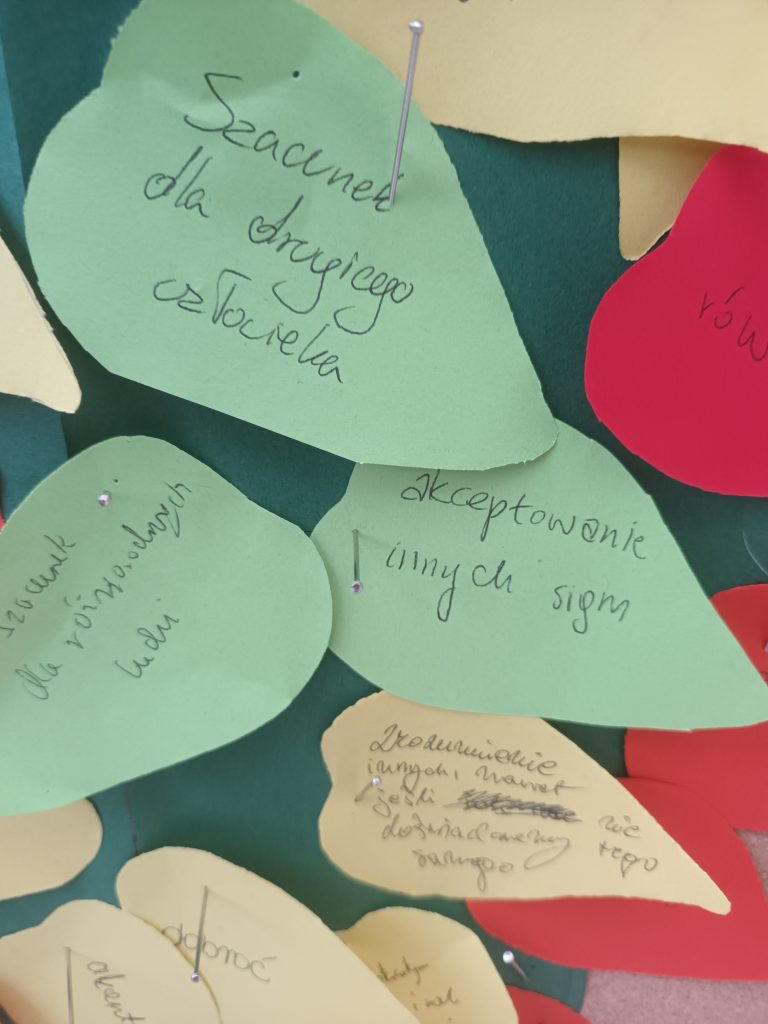 Szacunek
dla drugiego
człocieka
rów
akceptowanie
innych sigm
szacunek
dla różnorodnych
ludzi
Zrozumienie
innych, nawet
jeśli nie
doświadczamy tego
samego
dobroć
akcept